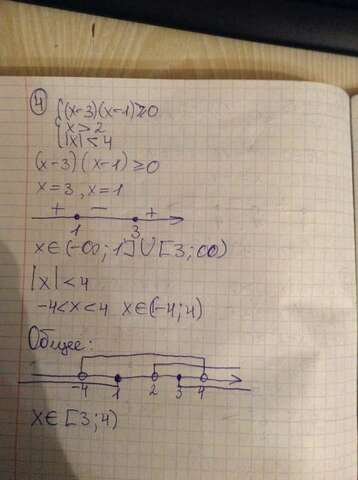 4
(x-3)(x-1)≥0
x>2
|x|<4
(x-3)(x-1)≥0
x=3, x=1
+ - +
1 3
x∈(-∞;1]∪[3;∞)
|x|<4
-4<x<4 x∈(-4;4)
Общее:
-4 1 2 3 4
x∈[3;4)